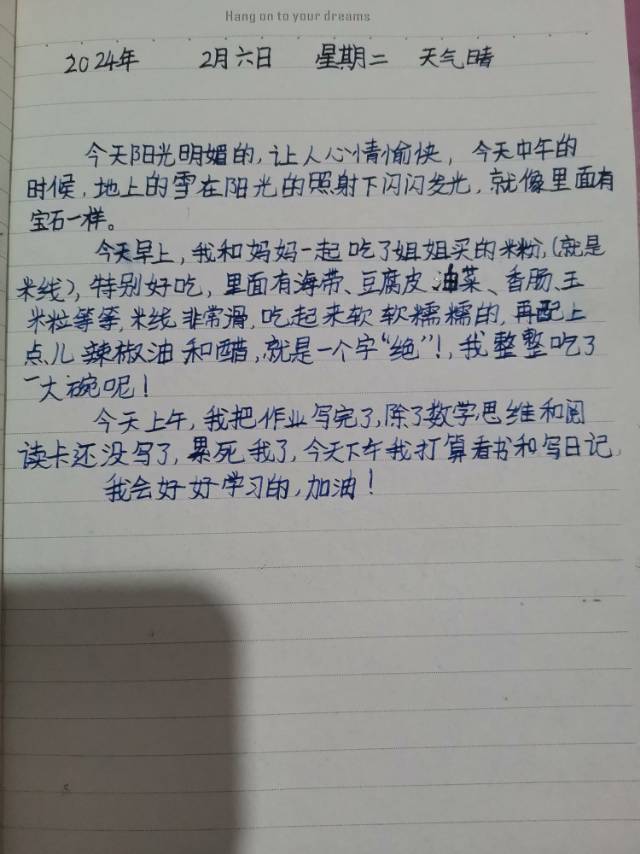 Hang on to your dreams
2024年 2月六日 星期二 天气晴
今天阳光明媚的,让人心情愉快,今天中午的
时候,地上的雪在阳光的照射下闪闪发光,就像里面有
宝石一样。
今天早上,我和妈妈一起吃了姐姐买的米粉,(就是
米线),特别好吃,里面有海带、豆腐皮、油菜、香肠、玉
米粒等等,米线非常滑,吃起来软软糯糯的,再配上
点儿辣椒油和醋,就是一个字“绝”!,我整整吃了
一大碗呢!
今天上午,我把作业写完了,除了数学思维和阅
读卡还没写了,累死我了,今天下午我打算看书和写日记,
我会好好学习的,加油!